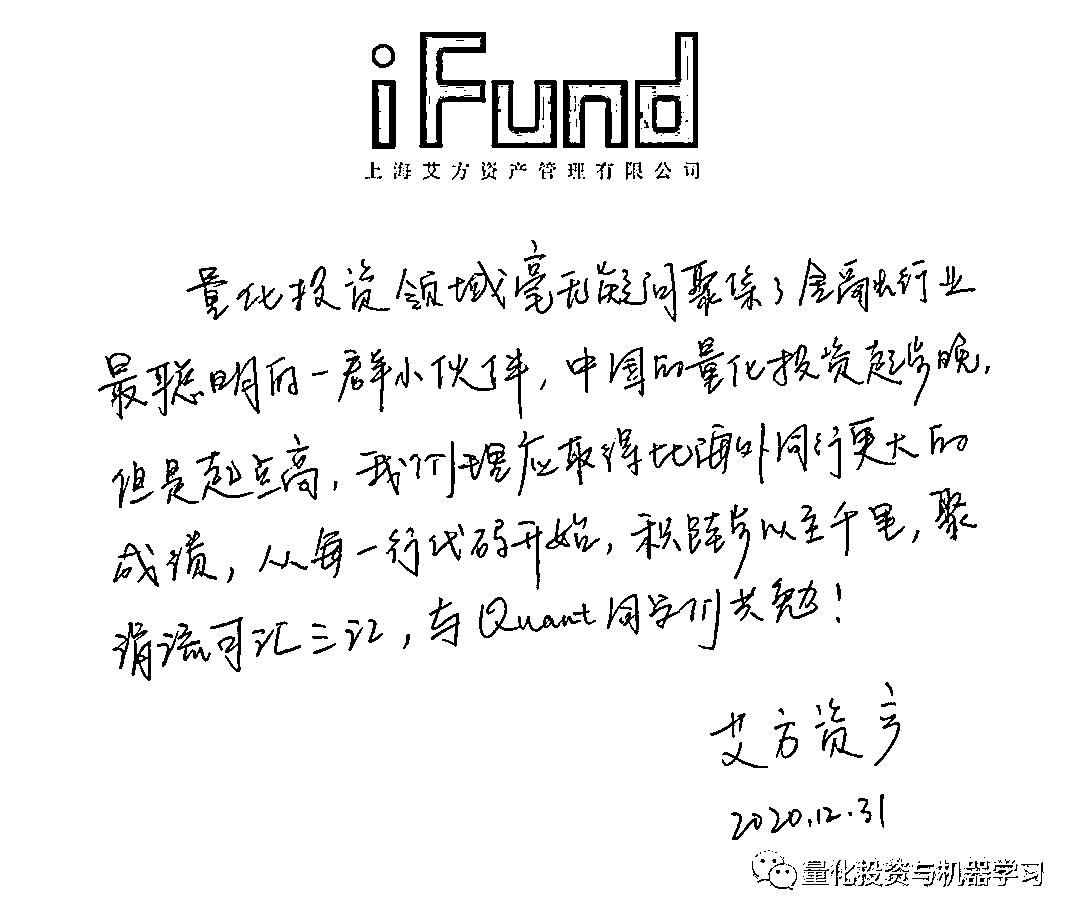 iFund
上海艾方资产管理有限公司
量化投资领域毫无疑问聚集了金融行业
最聪明的一群小伙伴，中国的量化投资起步晚，
但是起点高，我们理应取得比海外同行更大的
成绩，从每一行代码开始，积跬步以至千里，聚
涓流可汇三江，与Quant同学们共勉！
艾方资产
2020.12.31
量化投资与机器学习